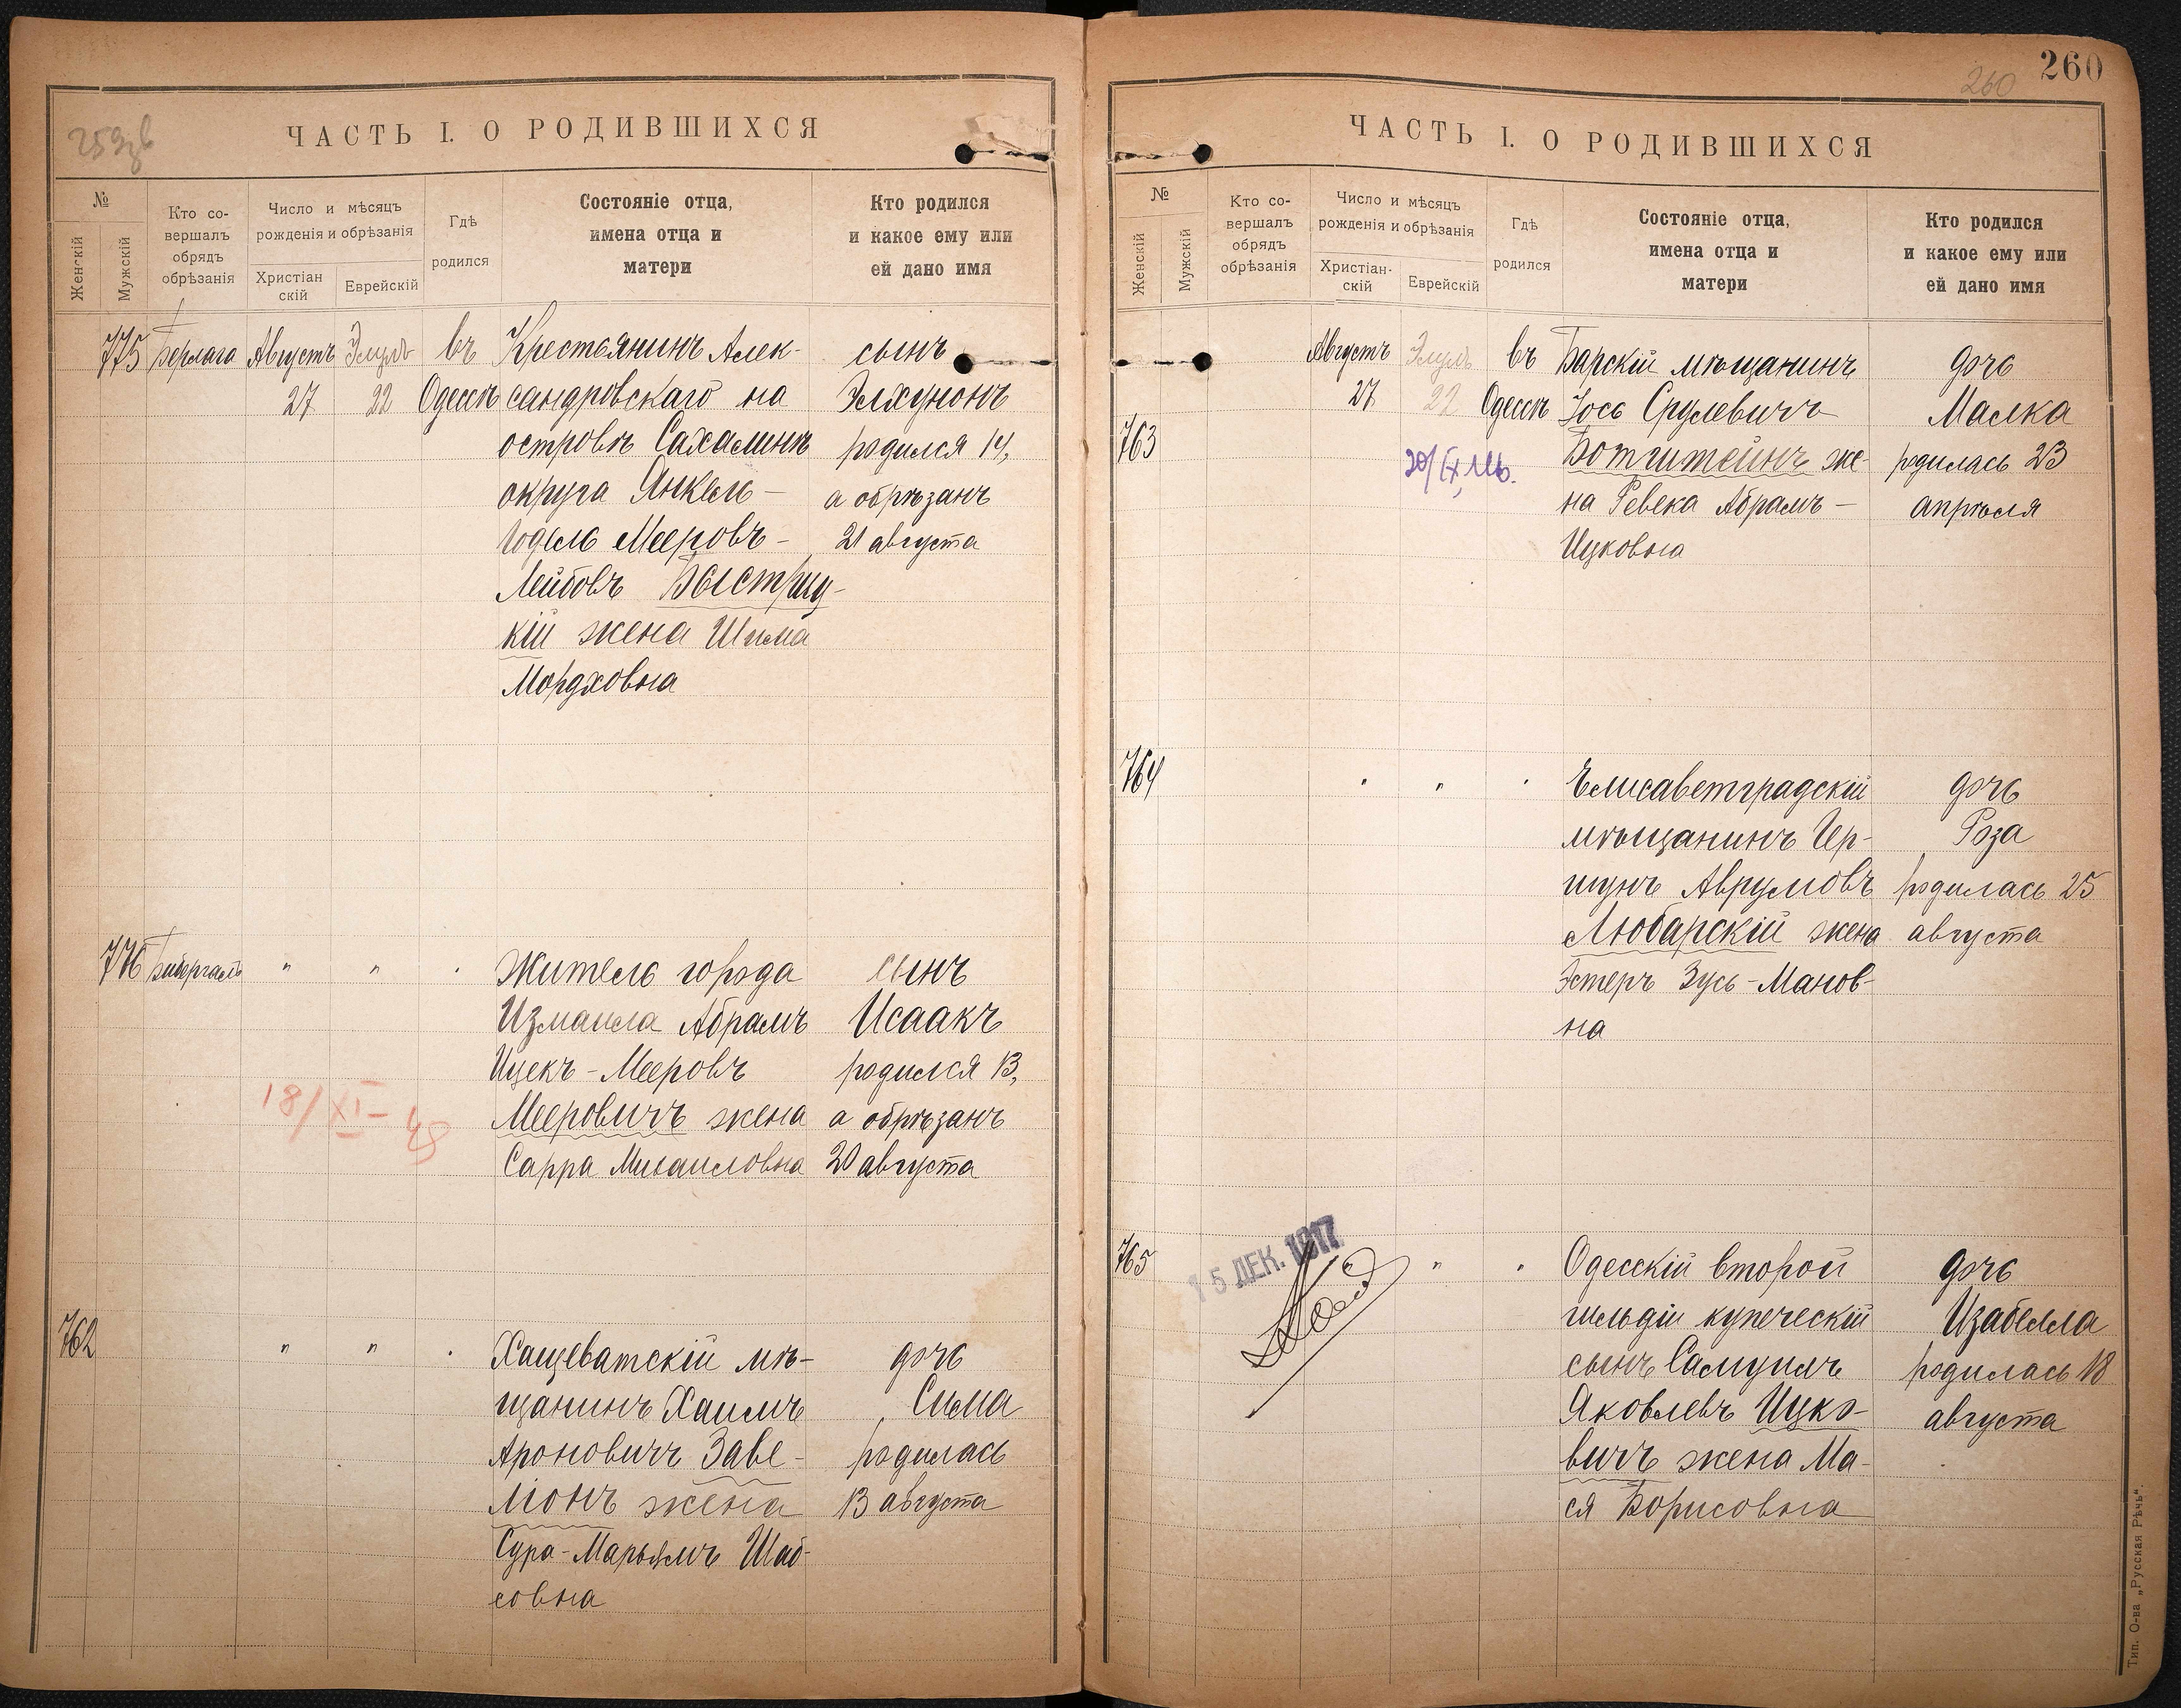 259 зв
ЧАСТЬ I. О РОДИВШИХСЯ
№
Женскій
Мужскій
Кто со-
вершалъ
обрядъ
обрѣзанія
Число и мѣсяцъ
рожденія и обрѣзанія
Христіан
скій
Еврейскій
Гдѣ
родился
Состояніе отца,
имена отца и
матери
Кто родился
и какое ему или
ей дано имя
775 Берлага Августъ Элулъ въ Крестьянинъ Алек- сынъ
27 22 Одессѣ сандровскаго на Элхунонъ
островѣ Сахалинѣ родился 14,
округа Янкель- а обрѣзанъ
Годель Мееровъ- 21 августа
Лейбовъ Быстриц-
кій жена Шима
Мордховна
776 " " . житель города сынъ
Измаила Абрамъ Исаакъ
Ицекъ-Мееровъ родился 13,
18/XI-48 Мееровичъ жена а обрѣзанъ
Сарра Михаиловна 20 августа
762 " " . Хащеватскій мѣ- дочь
щанинъ Хаимъ Сима
Ароновичъ Заве- родилась
ліонъ жена 13 августа
Сура-Марьямъ Шаб-
совна
260
260
ЧАСТЬ I. О РОДИВШИХСЯ
№
Женскій
Мужскій
Кто со-
вершалъ
обрядъ
обрѣзанія
Число и мѣсяцъ
рожденія и обрѣзанія
Христіан-
скій
Еврейскій
Гдѣ
родился
Состояніе отца,
имена отца и
матери
Кто родился
и какое ему или
ей дано имя
Августъ Элулъ въ Барскій мѣщанинъ дочь
27 22 Одессѣ Іось Срулевичъ Малка
763 Ботштейнъ же- родилась 23
на Ревека Абрамъ- апрѣля
Ицковна
764 " " . Елисаветградскій дочь
мѣщанинъ Гер- Роза
шунъ Аврумовъ родилась 25
Любарскій жена августа
Эстеръ Зусь-Манов-
на
765 15 ДЕК. 1917 " . Одесскій второй дочь
гильдіи купеческій Изабелла
сынъ Самуилъ родилась 18
Яковлевъ Ицко- августа
вичъ жена Ма-
ся Борисовна
Тип. О-ва „Русская Рѣчь".